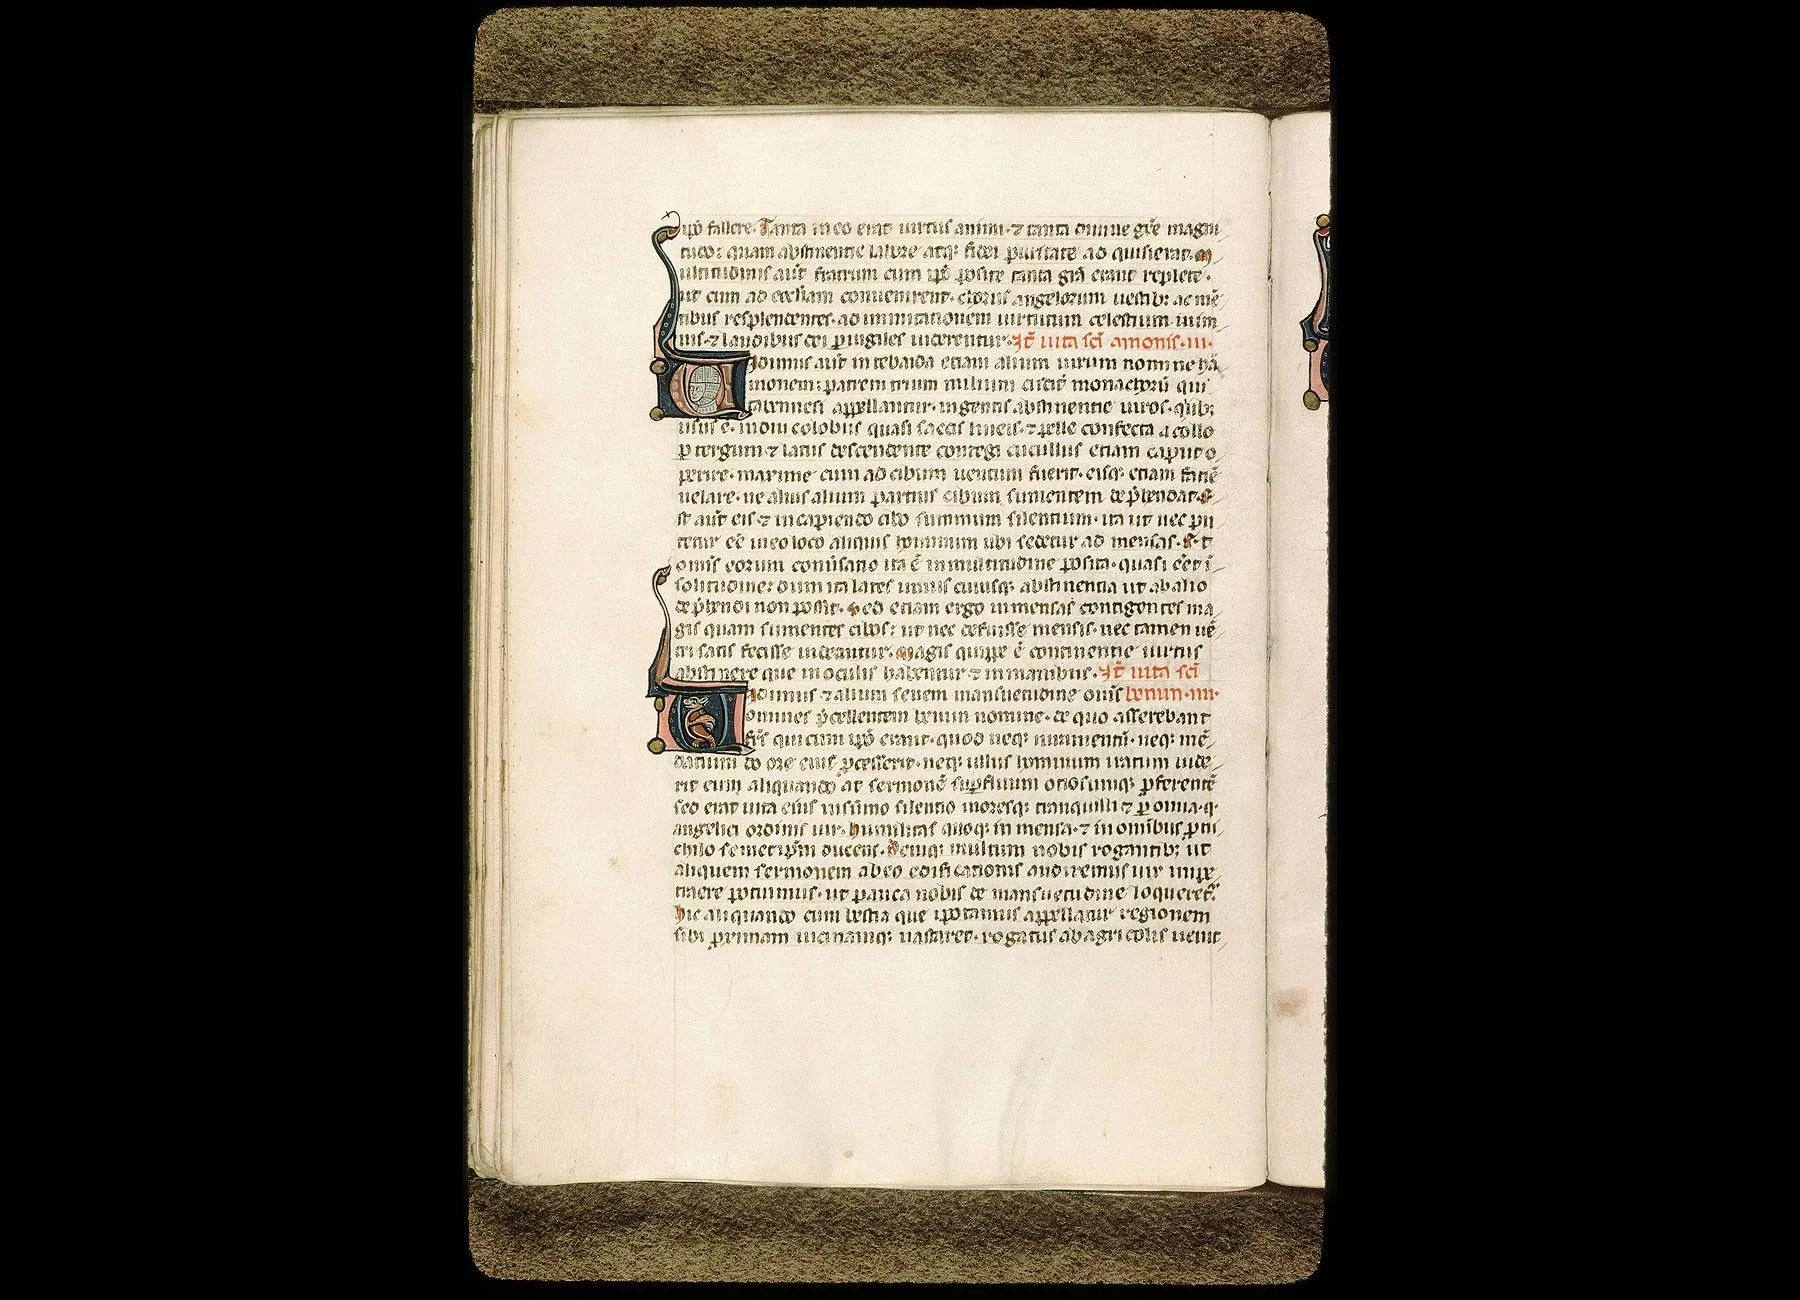 ip̄o fallere. Tanta in eo erat uirtus animi. ⁊ tanta diuine grē magni
tudo: quam abstinentie labore atq; fidei puritate adquisierat. M
ultitudinis aūt fratrum cum ip̄o posite tanta grā erant replete.
ut cum ad eccl̄iam conuenirent. chorus angelorum uestib; ac mē
tibus resplendentes. ad immitationem uirtutum celestium. imm
nis. ⁊ laudibus dei p̱uigiles uiderentur. It̄ uita sc̄i amonis. iii.
Uidimus aūt in tebaida etiam alium uirum nomine hā
monem: patrem trium milium circit̄ monachorū qui
tabennesi appellantur. ingentis abstinentie uiros. q̇ib;
usus ē. indui colobiis quasi saccis lineis. ⁊ pelle confecta a collo
p̱ tergum ⁊ latus descendente contegi cucullis etiam caput o
perire. maxime cum ad cibum uentum fuerit. eisq; etiam faciē
uelare. ne alius alium parcius cibum sumentem dep̄hendat. E
st aūt eis ⁊ in capiendo cibo summum silentium. ita ut nec pu
tetur eē in eo loco aliquis hominum ubi sedetur ad mensas. Et
om̄is eorum conūsatio ita ē in multitudine posita. quasi eēt ī
solitudine: dum ita latet unius cuiusq; abstinentia ut ab alio
dep̄hendi non possit. Sed etiam ergo in mensas contigentes ma
gis quam sumentes cibos: ut nec defuisse mensis. nec tamen uē
tri satis fecisse uideantur. Magis quippe ē continentie uirtus
abstinere que in oculis habentur ⁊ in manibus. It̄ uita sc̄i
Uidimus ⁊ alium senem mansuetudine om̄is benun. iiii.
omines p̄cellentem benun nomine. de quo asserebant
fr̄s qui cum ip̄o erant. quod neq; iuramentū. neq; mē
datium de ore eius p̱cesserit. neq; ullus hominum iratum uide
rit eum aliquando aut sermonē sup̱fluum otiosumq; p̱ferentē
sed erat uita eius in summo silentio moresq; tranquilli ⁊ p̱ omia. q
angelici ordinis uir. Humilitas quoq; in mensa. ⁊ in omībus p̱ ni
chilo semetip̄m ducens. Deniq; multum nobis rogantib; ut
aliquem sermonem ab eo edificationis audiremus uix impe
trare potuimus. ut pauca nobis de mansuetudine loqueret̄.
Hic aliquando cum bestia que ipotamus appellatur regionem
sibi p̱ximam uicinamq; uastaret. rogatus ab agricolis uenit